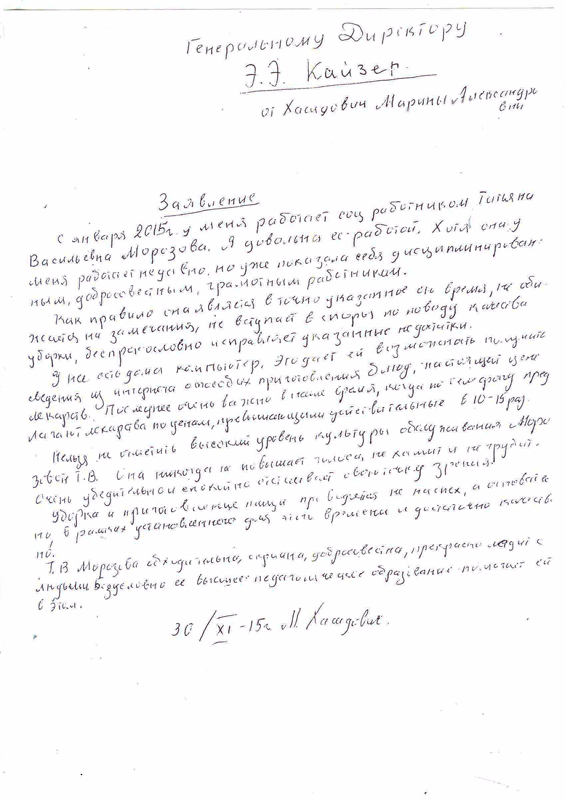 Генеральному Директору
Э.Э. Кайзер.
от Хасидович Марины Александро
вны
Заявление
С января 2015г. у меня работает соц работником Татьяна
Васильевна Морозова. Я довольна ее работой. Хотя она у
меня работает недавно, но уже показала себя дисциплинирован-
ным, добросовестным, грамотным работником.
Как правило она является в точно указанное ею время, не оби-
жается на замечания, не вступает в споры по поводу качества
уборки, беспрекословно исправляет указанные недостатки.
У нее есть дома компьютер. Это дает ей возможность получить
сведения из интернета о способах приготовления блюд, настоящей цене
лекарств. Последнее очень важно в наше время, когда по телефону пред
лагают лекарства по ценам, превышающими действительные в 10-15 раз.
Нельзя не отметить высокий уровень культуры обслуживания Моро
зовой Т.В. Она никогда не повышает голоса, не хамит и не грубит.
Очень убедительно и спокойно отстаивает свою точку зрения.
Уборка и приготовление пищи проводятся не наспех, а
но в рамках установленного для этого времени и достаточно качеств.
но.
Т.В Морозова обходительна, скромна, добросовестна, прекрасно ладит с
людьми. Безусловно ее высшее педагогическое образование помогает ей
в этом.
30/XI-15г М. Хасидович.